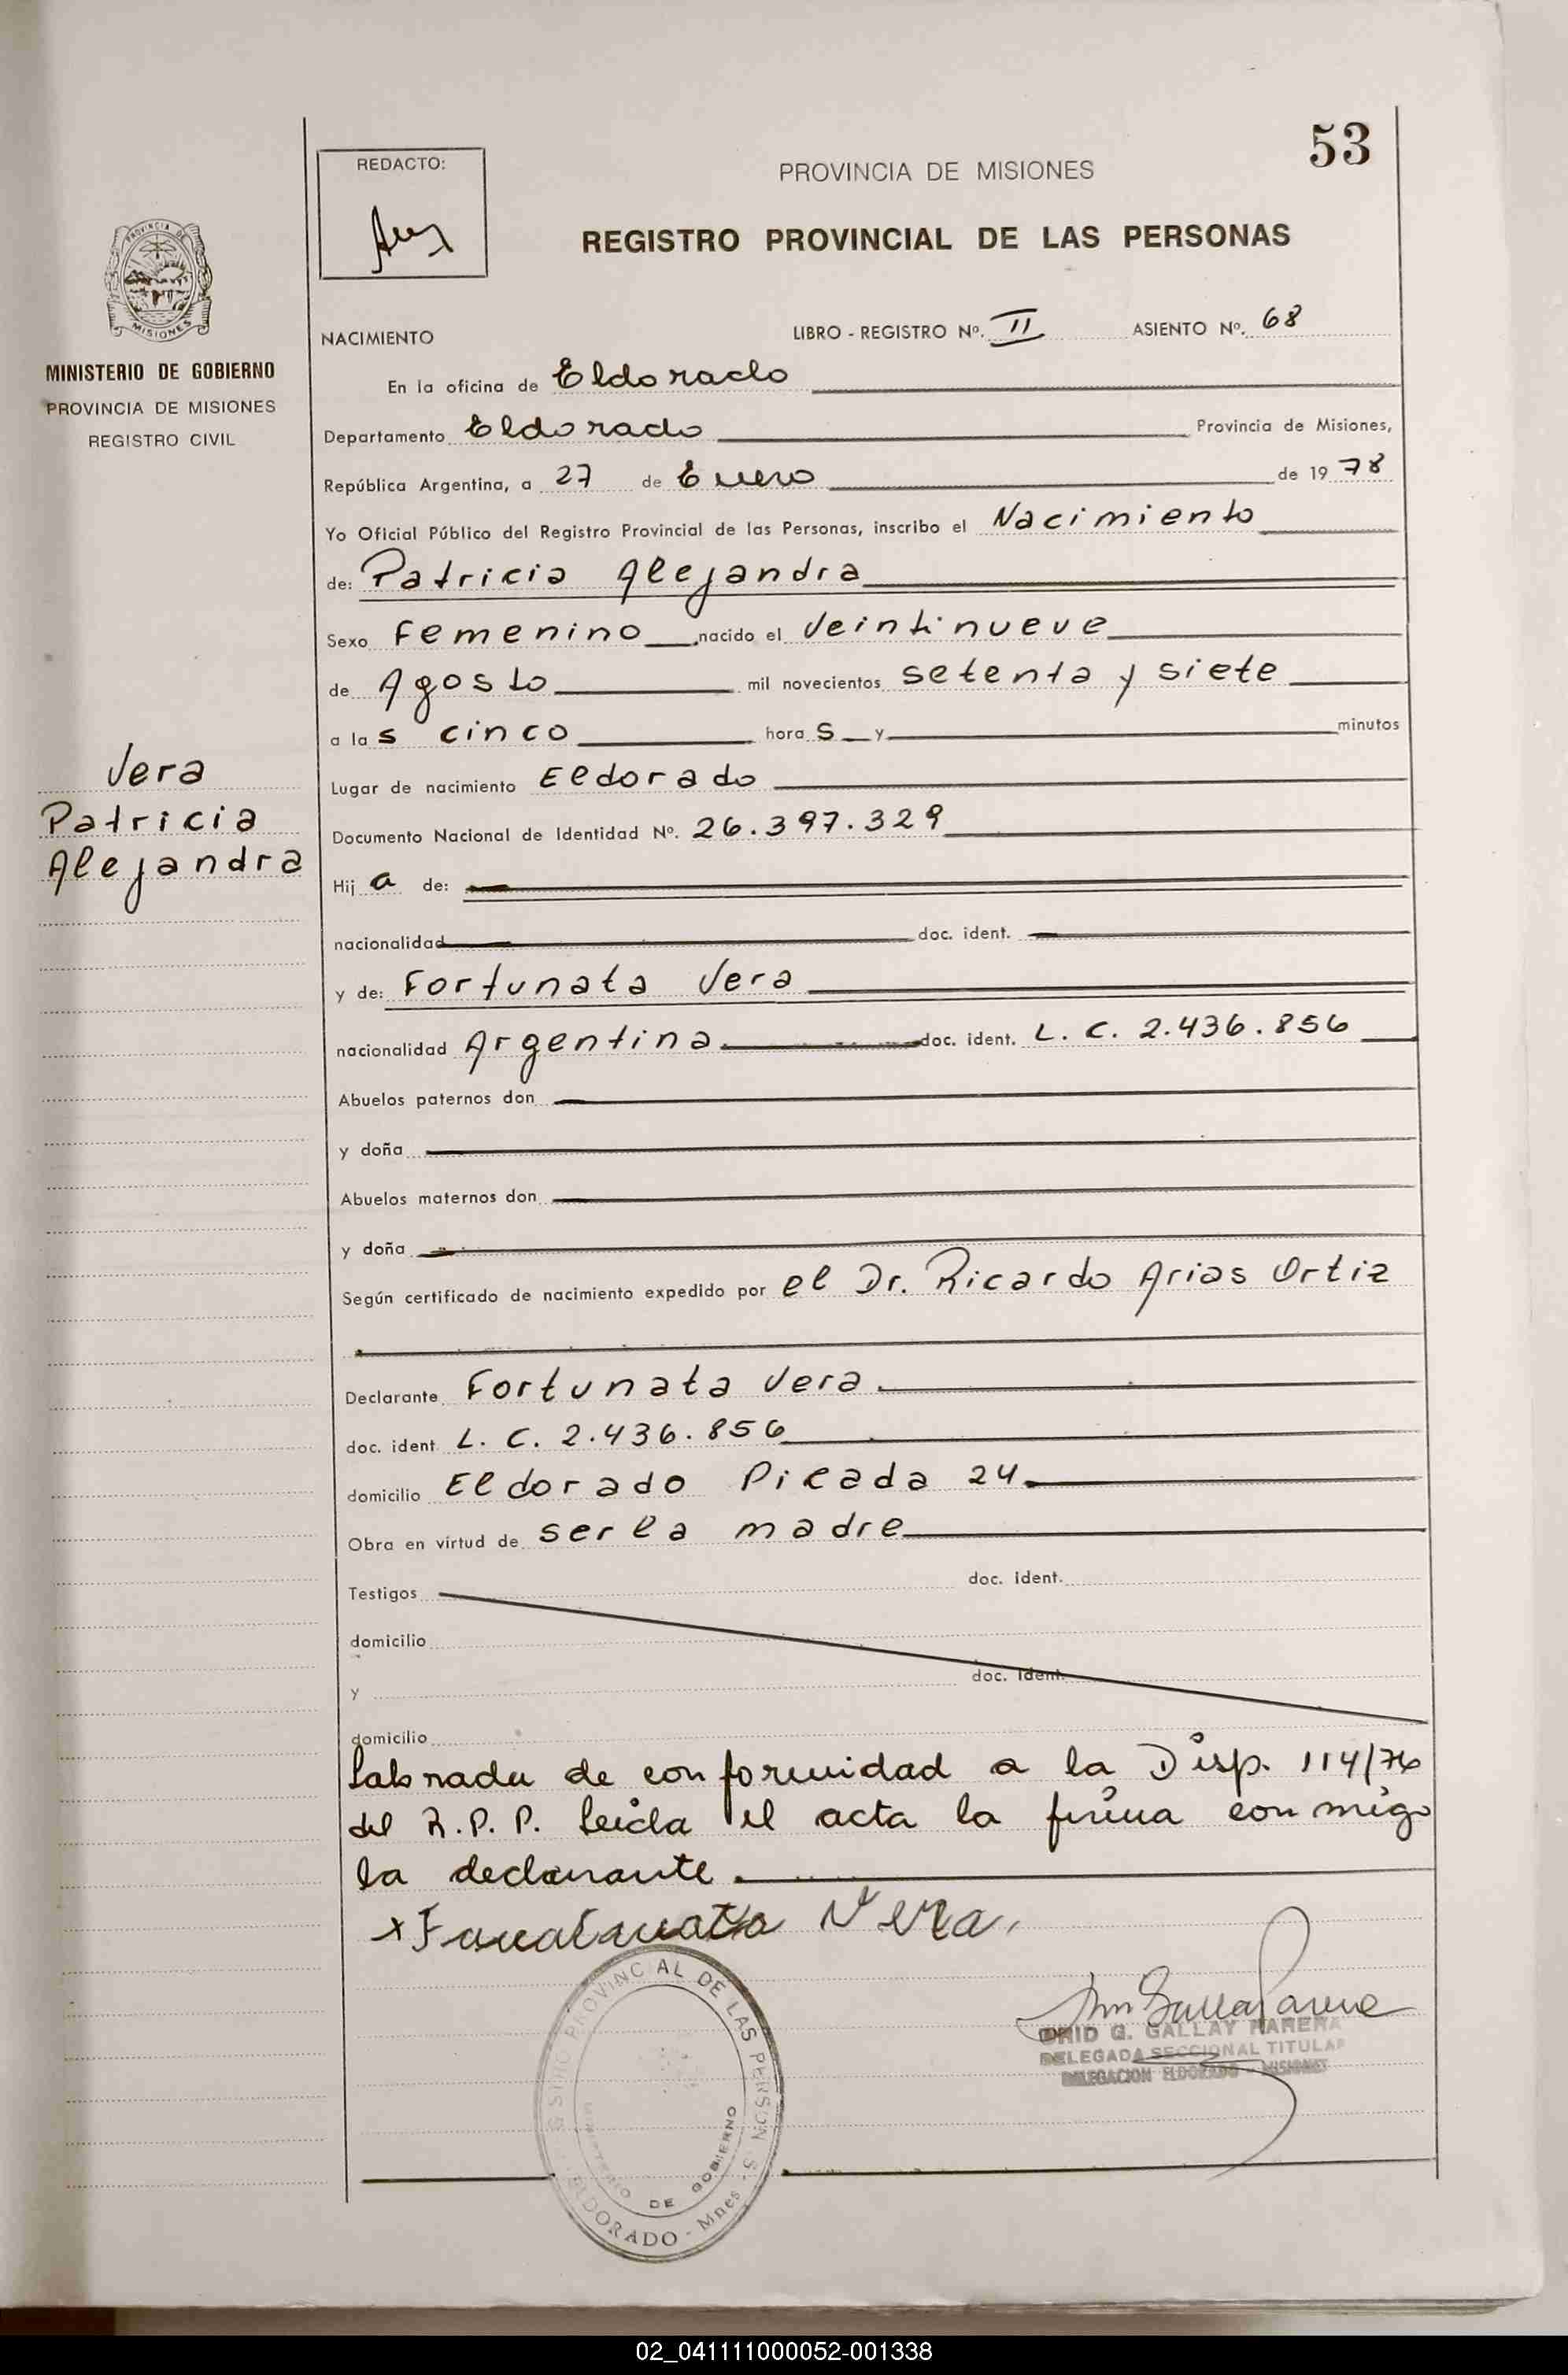 53
REDACTO:
PROVINCIA DE MISIONES
REGISTRO PROVINCIAL DE LAS PERSONAS
PROVINCIA DE
MISIONES
MINISTERIO DE GOBIERNO
PROVINCIA DE MISIONES
REGISTRO CIVIL
NACIMIENTO LIBRO - REGISTRO Nº. II ASIENTO Nº. 68
En la oficina de Eldorado
Departamento Eldorado Provincia de Misiones,
República Argentina, a 27 de Enero de 1978
Yo Oficial Público del Registro Provincial de las Personas, inscribo el Nacimiento
de: Patricia Alejandra
Sexo Femenino nacido el Veintinueve
de Agosto mil novecientos setenta y siete
a las cinco horas y minutos
Vera
Patricia
Alejandra
Lugar de nacimiento Eldorado
Documento Nacional de Identidad Nº. 26.397.329
Hija de:
nacionalidad doc. ident.
y de: Fortunata Vera
nacionalidad Argentina doc. ident. L. C. 2.436.856
Abuelos paternos don
y doña
Abuelos maternos don
y doña
Según certificado de nacimiento expedido por el Dr. Ricardo Arias Ortiz
Declarante Fortunata Vera
doc. ident. L. C. 2.436.856
domicilio Eldorado Picada 24
Obra en virtud de ser la madre
Testigos doc. ident.
domicilio
y doc. ident.
domicilio
Labrada de conformidad a la Disp. 114/76
del R.P.P. Leída el acta la firma conmigo
la declarante.
x Vera
PROVINCIAL DE LAS PERSON S
MINISTERIO DE GOBIERNO
ELDORADO - Mnes
G. GALLAY
DELEGADA SECCIONAL TITULAR
DELEGACION ELDORADO - MISIONES
02_041111000052-001338